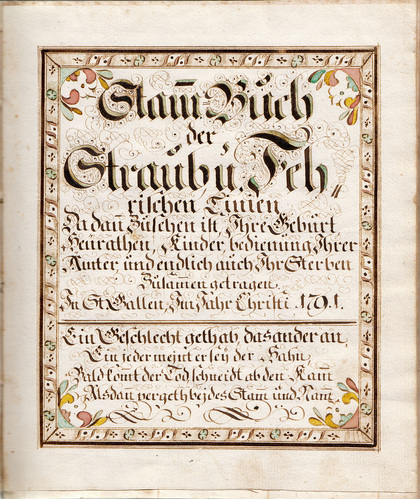 Stam̄-Bůch
der
Straubů. Feh„
rischen Linien
Da dan̄ Zůsehen ist, Ihre Gebůrt
Heürathen, Kinder, bedienung Ihrer
Ämter, und endlich auch Ihr Sterben
Zůsam̄en getragen.
In St Gallen, Im Jahr Christi 1791.
Ein Geschlecht geth ab, das ander an,
Ein jeder meÿnt er seÿ der Hahn,
Bald kom̄t der Tod, schneidt ab den Kam̄
Alsdan̄ vergeth beÿdes Stam̄ und Nam̄